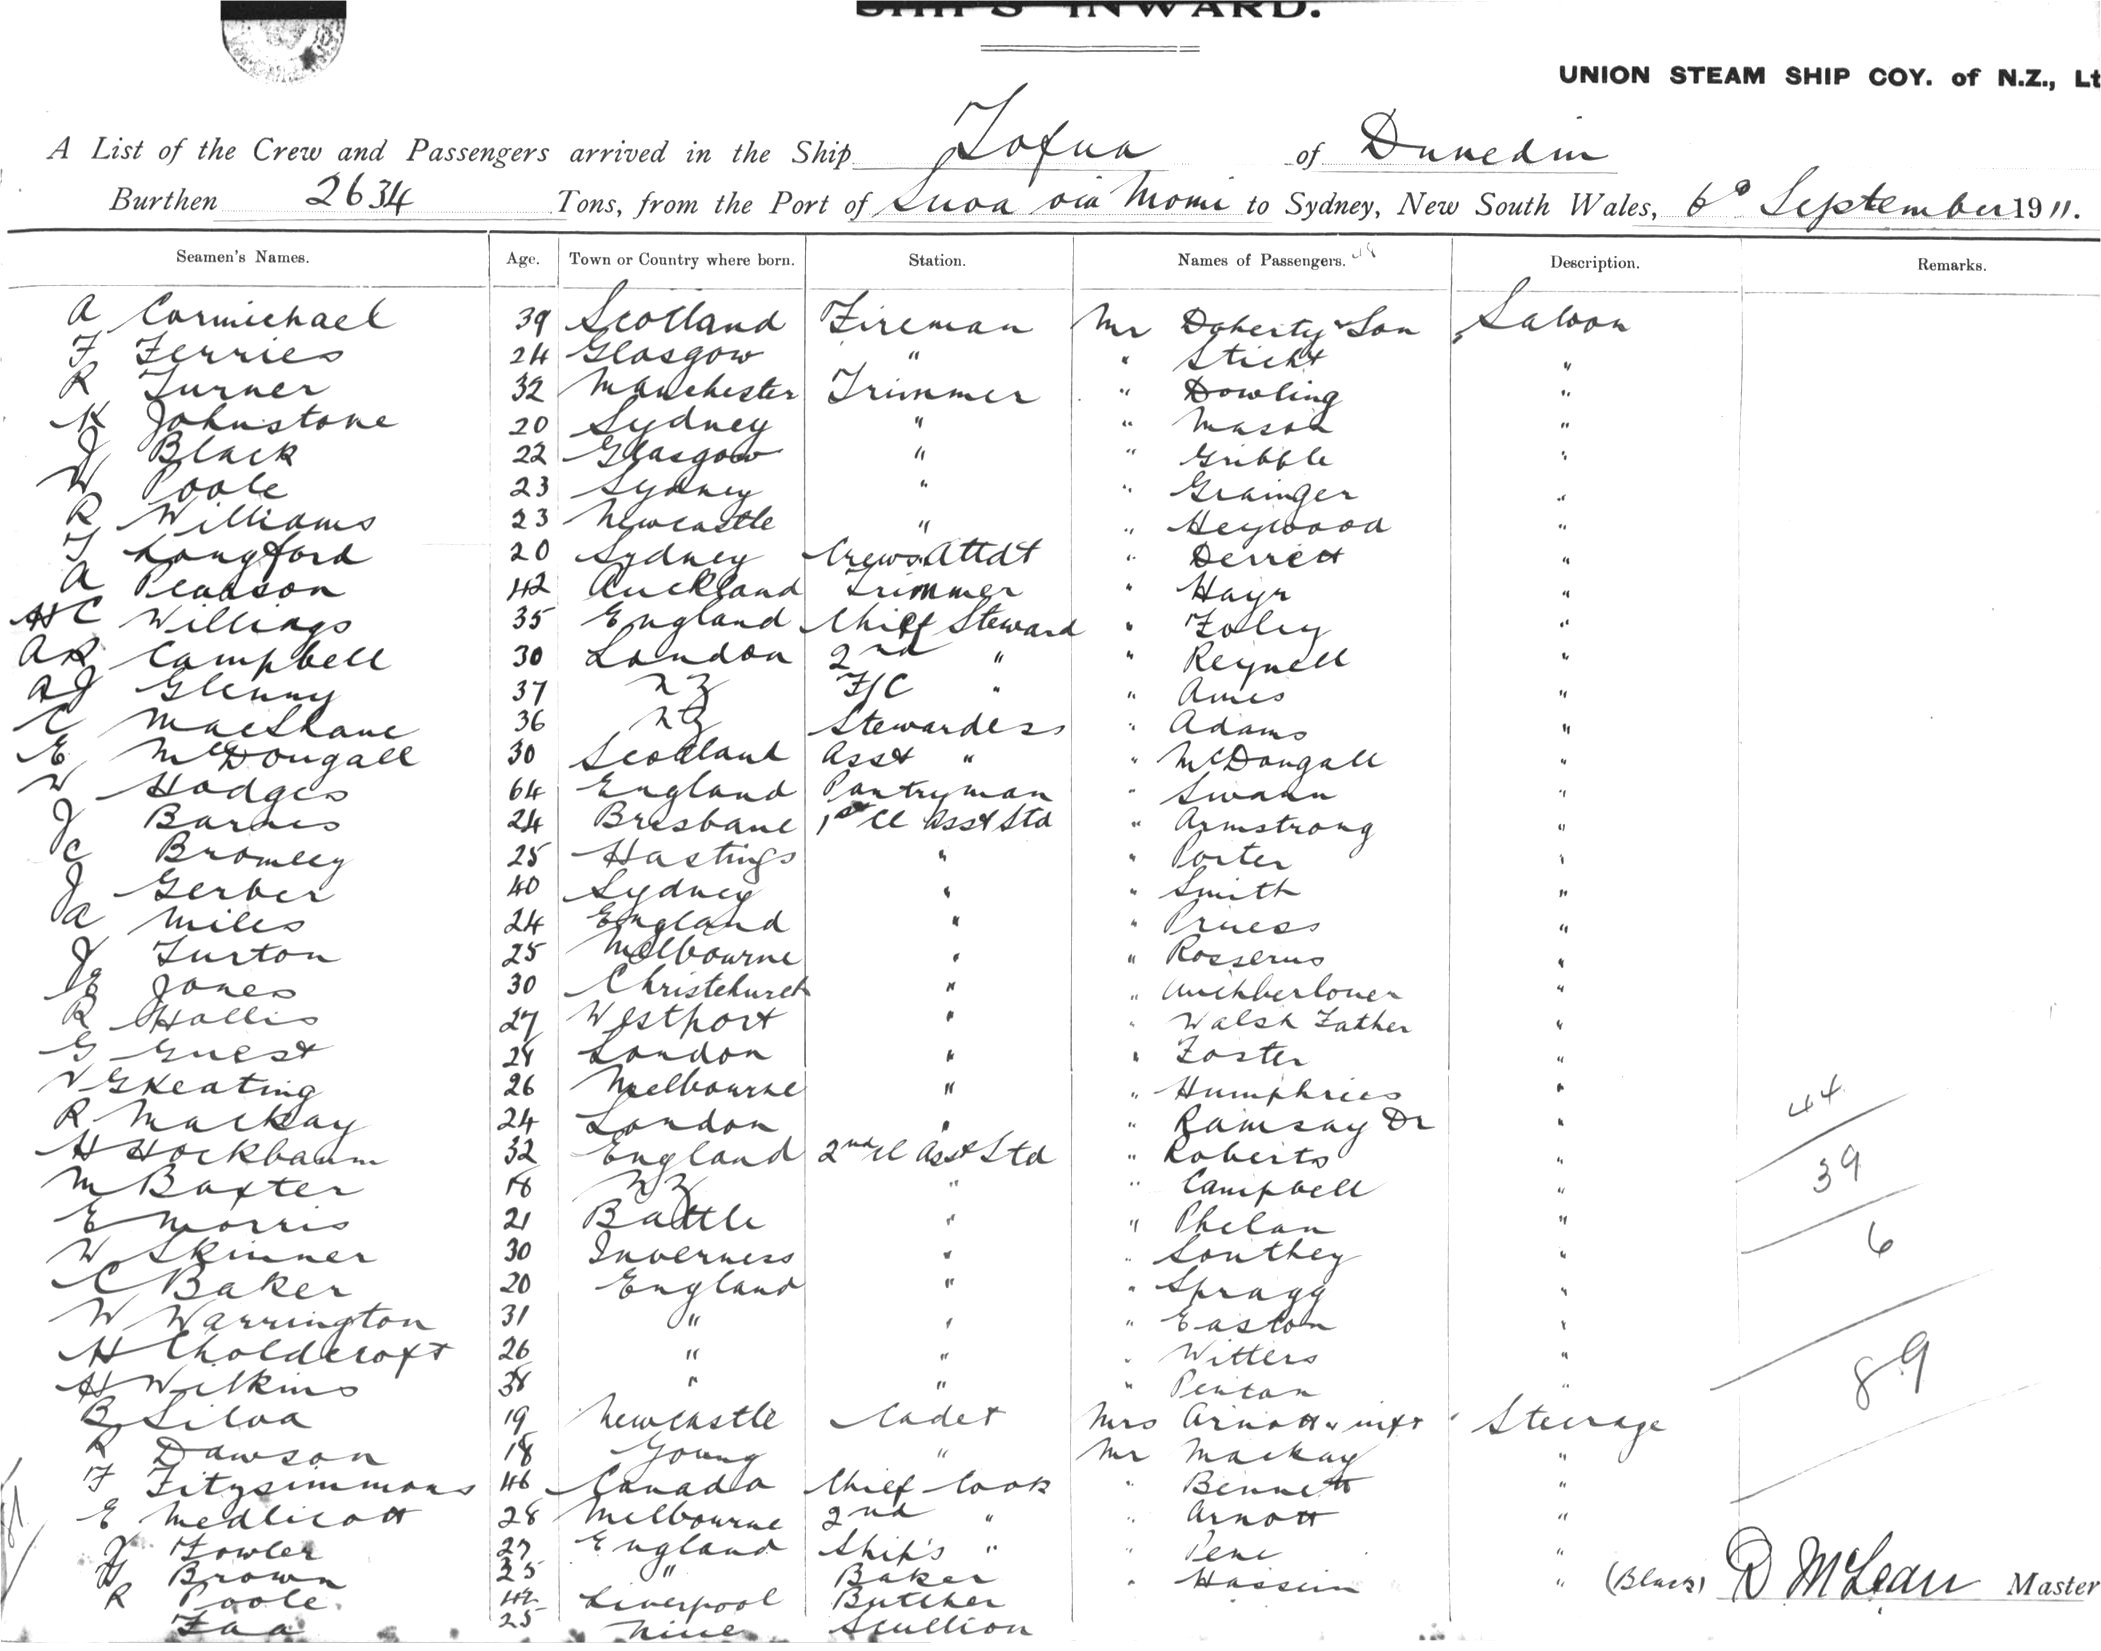 SHIP'S INWARD.
UNION STEAM SHIP COY. of N.Z., Lt
A List of the Crew and Passengers arrived in the Ship Tofua of Dunedin
Burthen 2634 Tons, from the Port of Suva via Momi to Sydney, New South Wales, 6th September 1911.
Seamen's Names. Age. Town or Country where born. Station. Names of Passengers. Description. Remarks.
A Carmichael 39 Scotland Fireman Mr Doherty & Son Saloon
F Ferries 24 Glasgow " " Sticht "
R Turner 32 Manchester Trimmer " Dowling "
K Johnstone 20 Sydney " " Mason "
J Black 22 Glasgow " " Gribble "
W Poole 23 Sydney " " Grainger "
R Williams 23 Newcastle " " Heywood "
T Langford 20 Sydney Crews Attdt " Derrett "
A Pearson 42 Auckland Trimmer " Hayr "
HC Willings 35 England Chief Steward " Foley "
AR Campbell 30 London 2nd " " Reynell "
AJ Glenny 37 NZ F/C " " Ames "
C MacShane 36 NZ Stewardess " Adams "
E McDougall 30 Scotland Asst " " McDougall "
W Hodges 64 England Pantryman " Swann "
J Barnes 24 Brisbane 1st Cl Asst Std " Armstrong "
C Bromley 25 Hastings " " Porter "
J Gerber 40 Sydney " " Smith "
A Miles 24 England " " Pruess "
J Turton 25 Melbourne " " Rosserus "
E Jones 30 Christchurch " "
R Hollis 27 Westport " " Walsh Father "
G Guest 28 London " " Foster "
V G Keating 26 Melbourne " " Humphries "
R Mackay 24 London " " Ramsay Dr " 44
H Hockbaum 32 England 2nd Cl Asst Std " Roberts " 39
M Baxter 18 NZ " " Campbell "
E Morris 21 Battle " " Phelan " 6
W Skinner 30 Inverness " " Southey "
C Baker 20 England " " Spragg "
W Warrington 31 " " " Easton "
H Choldcroft 26 " " " Witters " 89
H Wilkins 38 " " " Pentan "
B Silva 19 Newcastle Cadet Mrs Arnott & inft Steerage
R Dawson 18 Young " Mr Mackay "
F Fitzsimmons 46 Canada Chief Cook " Bennett "
E Medlicott 28 Melbourne 2nd " " Arnott "
J Fowler 27 England Ship's " " Pene "
Brown 25 " Baker " Hassein " (Black) D McLean Master
R Poole 42 Liverpool Butcher
Faa 25 Niue Scullion